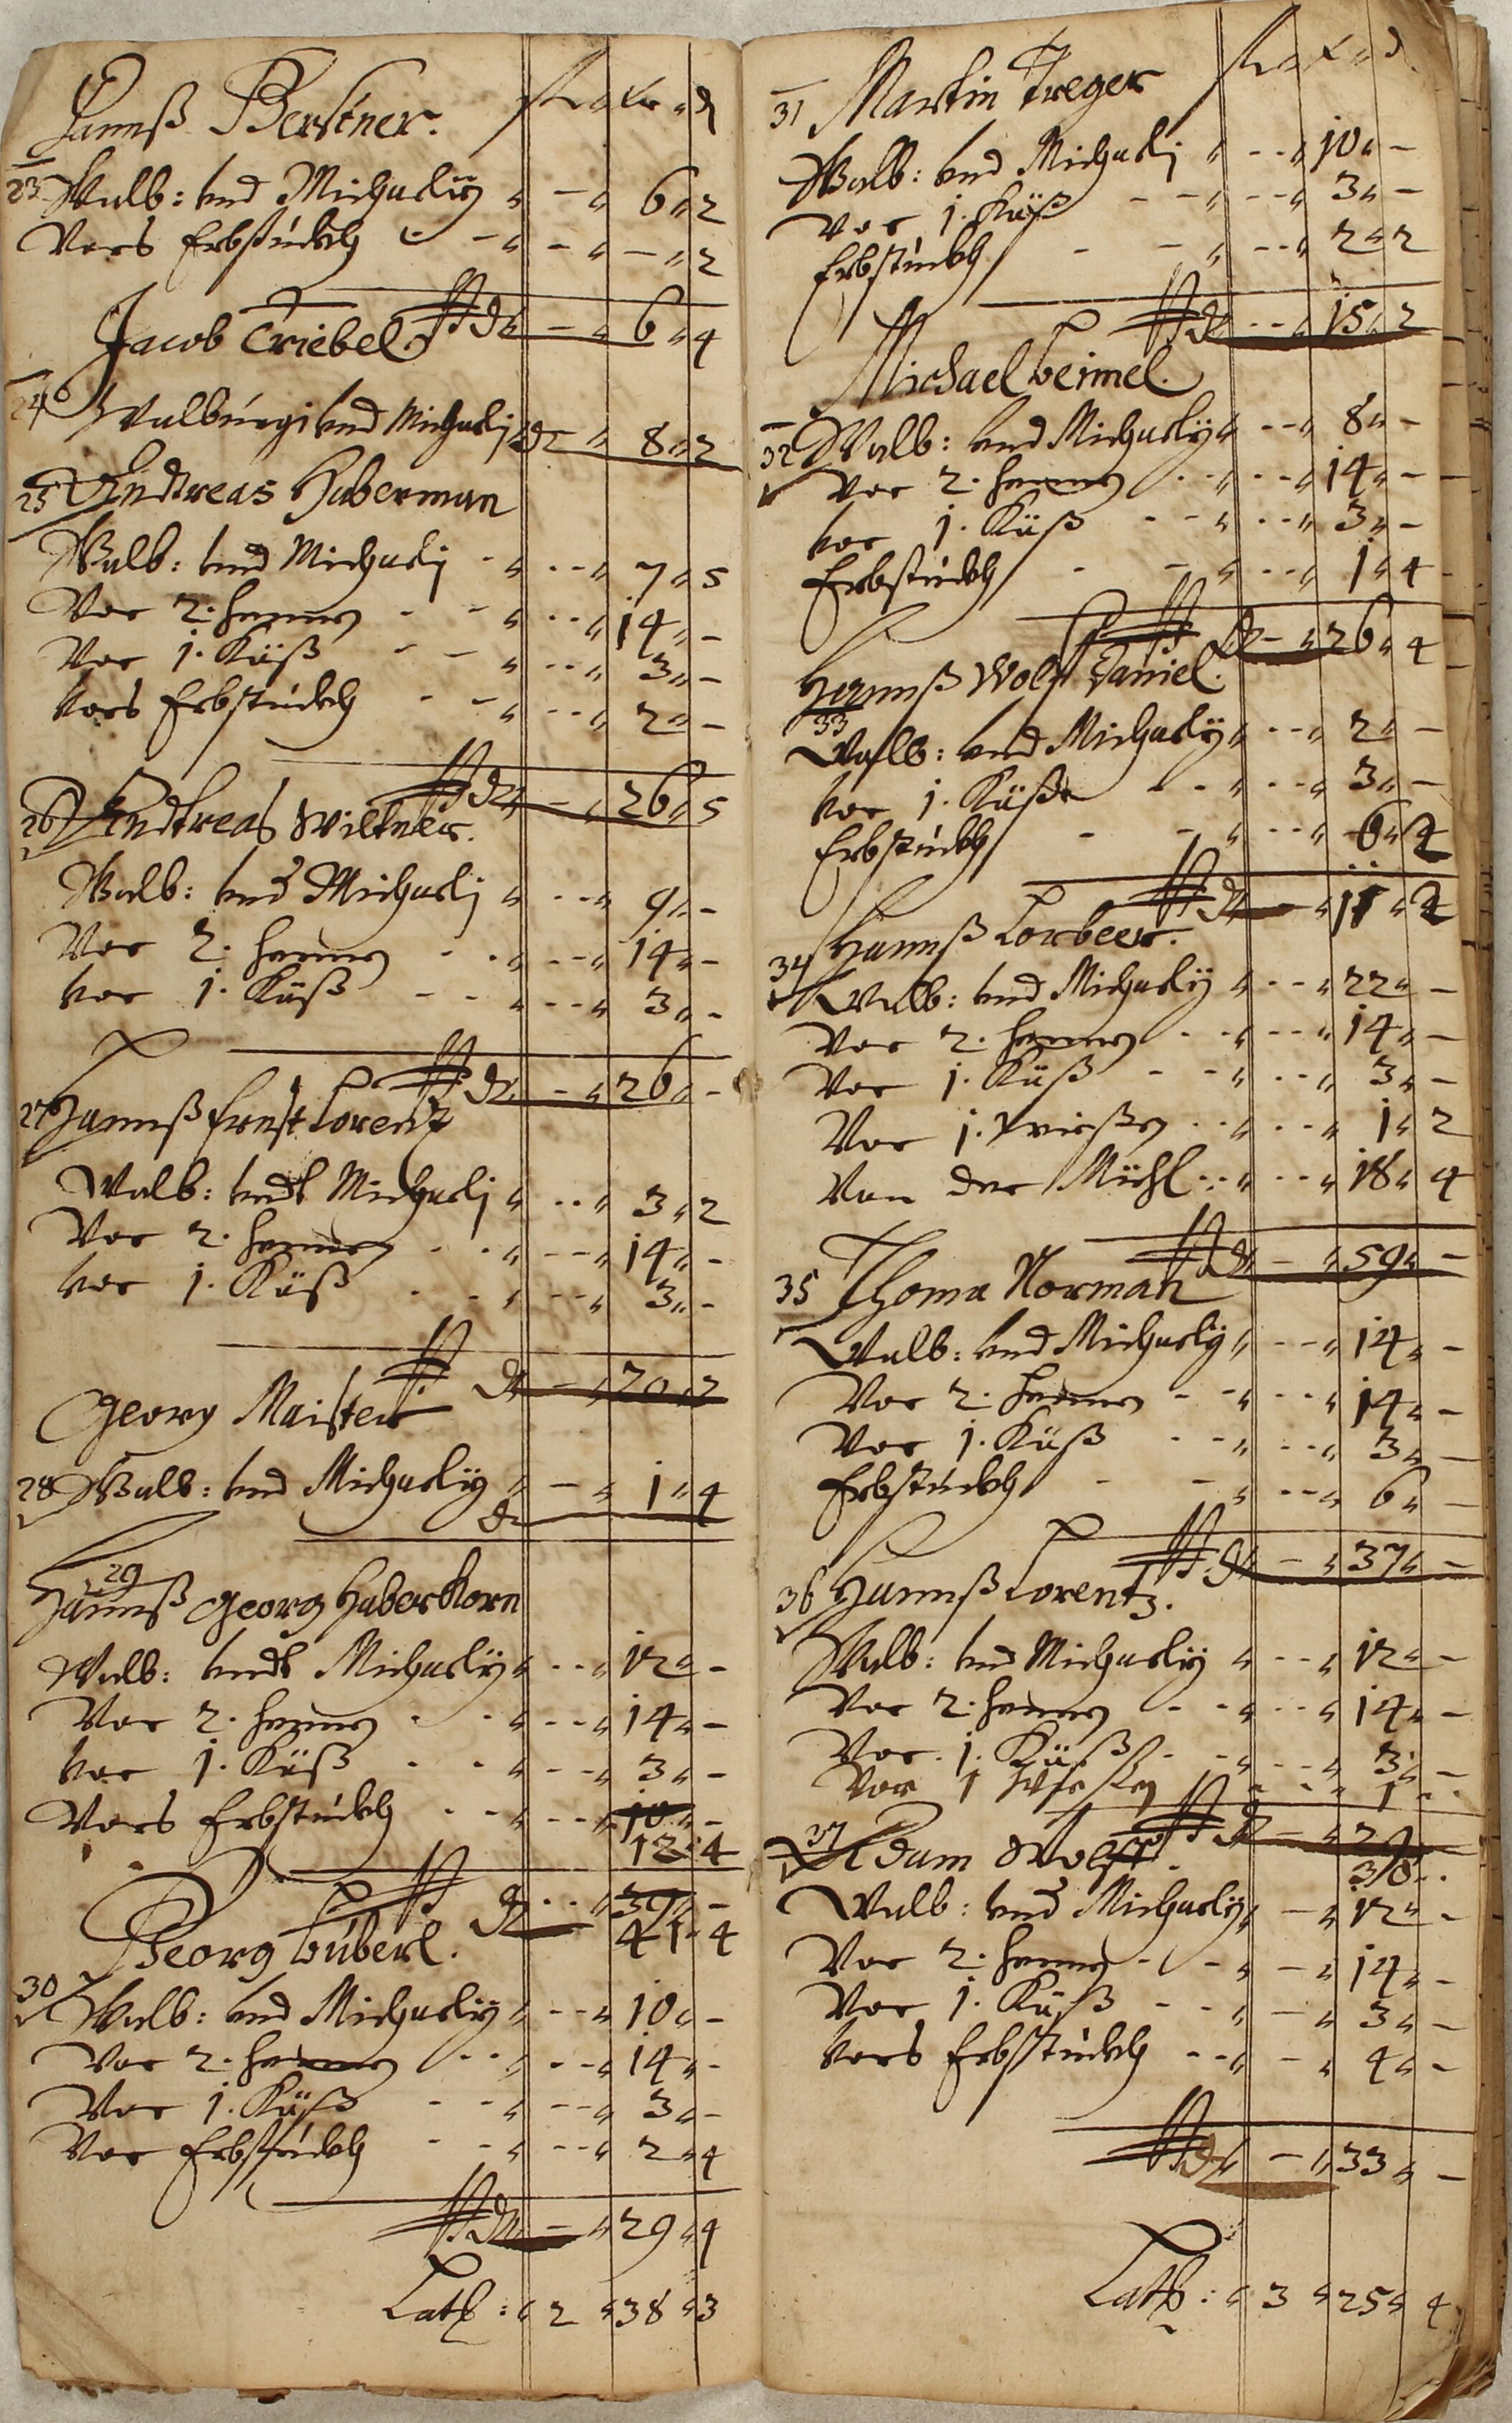 Hannß Berstner. fl " kr " d
23 Walb: vnd Michaelij " – " 6 " 2
Vors Erbstückh " – " – " 2
d " – " 6 " 4
Jacob Triebel
24 Walburgi vnd Michaelj " 8 " 2
25 Endtreas Haberman
Walb: vnd Michaelj " -- " 7 " 5
Vor 2. hennen - - " -- " 14 " –
Vor 1. Käß - - " -- " 3 " –
Vors Erbstückh - - " -- " 2 " –
– " 26 " 5
26 Endtreas Wiltner.
Walb: vnd Michaelj " -- " 9 " –
Vor 2. hennen - - " -- " 14 " –
Vor 1. Käß - - " -- " 3 " –
– " 26 " –
27 Hannß Ernst Lorentz
Walb: vndt Michaelj " -- " 3 " 2
Vor 2. hennen - - " -- " 14 " –
Vor 1. Käß - - " -- " 3 " –
– " 20 " 2
Georg Maister
28 Walb: vnd Michaelij " – " 1 " 4
29
Hannß Georg Haberkorn
Walb: vndt Michaelij " -- " 12 " –
Vor 2. hennen - - " -- " 14 " –
Vor 1. Käß - - " -- " 3 " –
Vors Erbstückh - - " -- " 10 " –
12 " 4
-- " 39 " –
41 - 4
Georg Büberl.
30 Walb: vnd Michaelij " -- " 10 " –
Vor 2. hennen - - " -- " 14 " –
Vor 1. Käß - - " -- " 3 " –
Vor Erbstückh - - " -- " 2 " 4
– " 29 " 4
Latß: " 2 " 38 " 3
31 Martin Treger fl " kr " d
Walb: vnd Michaelj " -- " 10 " –
Vor 1. Käß - - " -- " 3 " –
Erbstückh - - " -- " 2 " 2
-- " 15 " 2
Michael Beimel.
32 Walb: vnd Michaelij " -- " 8 " –
Vor 2. hennen - - " -- " 14 " –
Vor 1. Käß - - " -- " 3 " –
Erbstückh - - " -- " 1 " 4
– " 26 " 4
Hannß Wolf Daniel.
33
Walb: vnd Michaelij " -- " 2 " –
Vor 1. Käße - - " -- " 3 " –
Erbstückh - - " -- " 6 " 2
– " 11 " 2
34 Hannß Lorbeer.
Walb: vnd Michaelij " -- " 22 " –
Vor 2. hennen - - " -- " 14 " –
Vor 1. Käß - - " -- " 3 " –
Vor 1. - - " -- " 1 " 2
Von der Mühl - - " -- " 18 " 4
– " 59 " –
35 Thoma Norman
Walb: vnd Michaelij " -- " 14 " –
Vor 2. hennen - - " -- " 14 " –
Vor 1. Käß - - " -- " 3 " –
Erbstückh - - " -- " 6 " –
– " 37 " –
36 Hannß Lorentz.
Walb: vnd Michaelij " -- " 12 " –
Vor 2. hennen - - " -- " 14 " –
Vor 1. Käß - - " -- " 3 " –
Vor 1 " - - " 1 " -
– " 29
30 - -
37 Adam Wolff.
Walb: vnd Michaelij " – " 12 " -
Vor 2. hennen - - " – " 14 " –
Vor 1. Käß - - " – " 3 " –
Vors Erbstückh - - " – " 4 " –
– " 33 " –
Latß: " 3 " 25 " 4